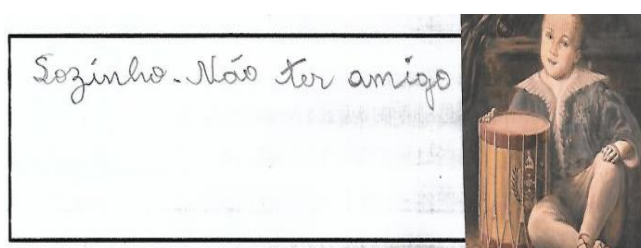 Sozinho. Não ter amigo